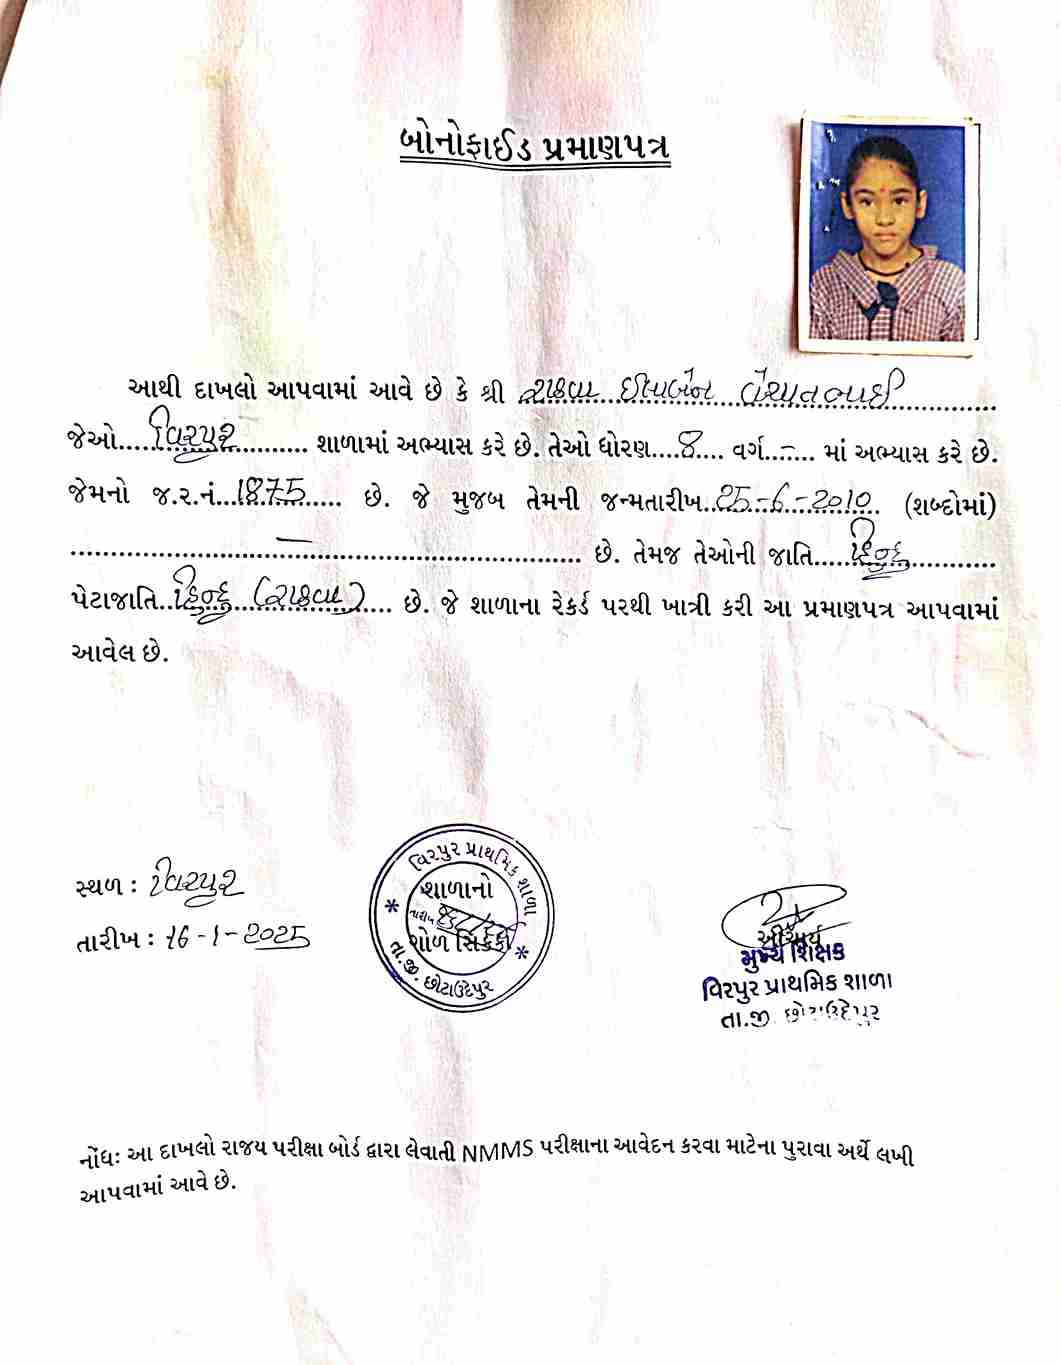 બોનોફાઈડ પ્રમાણપત્ર
આથી દાખલો આપવામાં આવે છે કે શ્રી રાઠવા ઈલાબેન વેચાતભાઈ
જેઓ.....વિરપુર............ શાળામાં અભ્યાસ કરે છે. તેઓ ધોરણ....8.... વર્ગ..-.... માં અભ્યાસ કરે છે.
જેમનો જ.ર.નં...1875...... છે. જે મુજબ તેમની જન્મતારીખ..25-6-2010.. (શબ્દોમાં)
.................—................. છે. તેમજ તેઓની જાતિ.....હિન્દુ............
પેટાજાતિ..હિન્દુ (રાઠવા).... છે. જે શાળાના રેકર્ડ પરથી ખાત્રી કરી આ પ્રમાણપત્ર આપવામાં
આવેલ છે.
સ્થળ : વિરપુર
તારીખ : 16-1-2025
વિરપુર પ્રાથમિક શાળા
શાળાનો
તારીખ
ગોળ સિક્કો
તા.જી. છોટાઉદેપુર
આચાર્ય
મુખ્ય શિક્ષક
વિરપુર પ્રાથમિક શાળા
તા.જી. છોટાઉદેપુર
નોંધઃ આ દાખલો રાજય પરીક્ષા બોર્ડ દ્વારા લેવાતી NMMS પરીક્ષાના આવેદન કરવા માટેના પુરાવા અર્થે લખી
આપવામાં આવે છે.